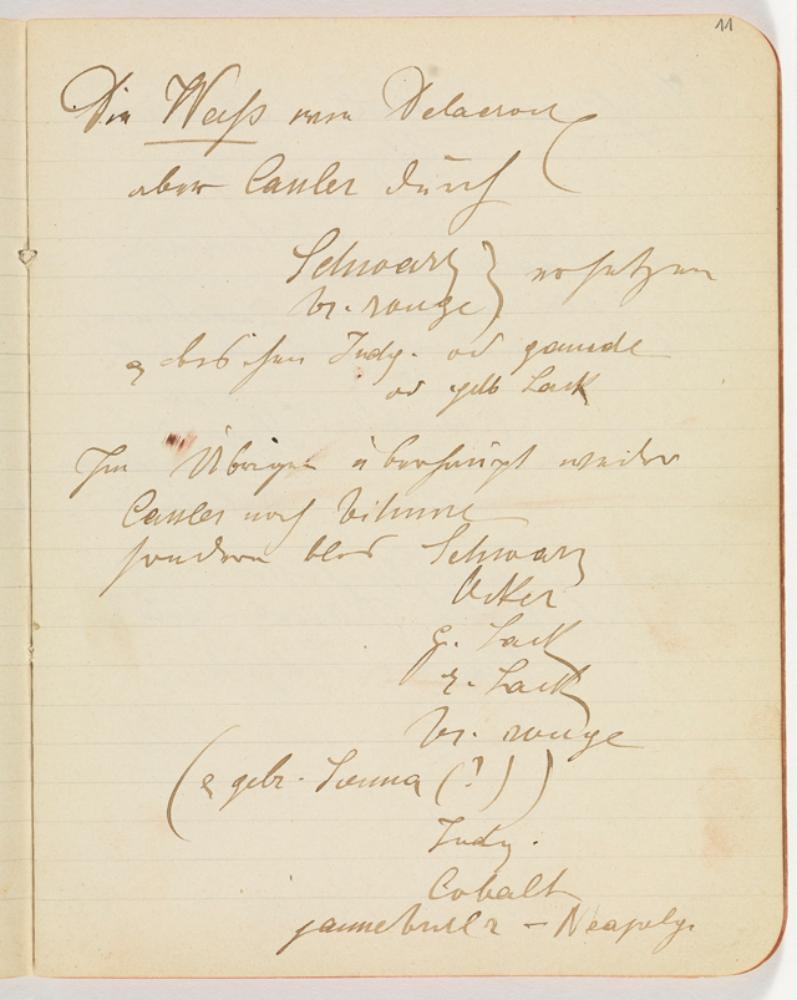 11
Die Weiß von Delacroix (
aber Casseler durch
Schwarz } ersetzen
br. rouge
& bischen Indg. od garude
od gelb Lack
Im Übrigen überhaupt weder
Casseler noch bitume
sondern blos Schwarz
Ocker
g. Lack
r. Lack
br. rouge
(& gebr. Sienna (?))
Indg.
Cobalt
jaune brill – Neaplg.